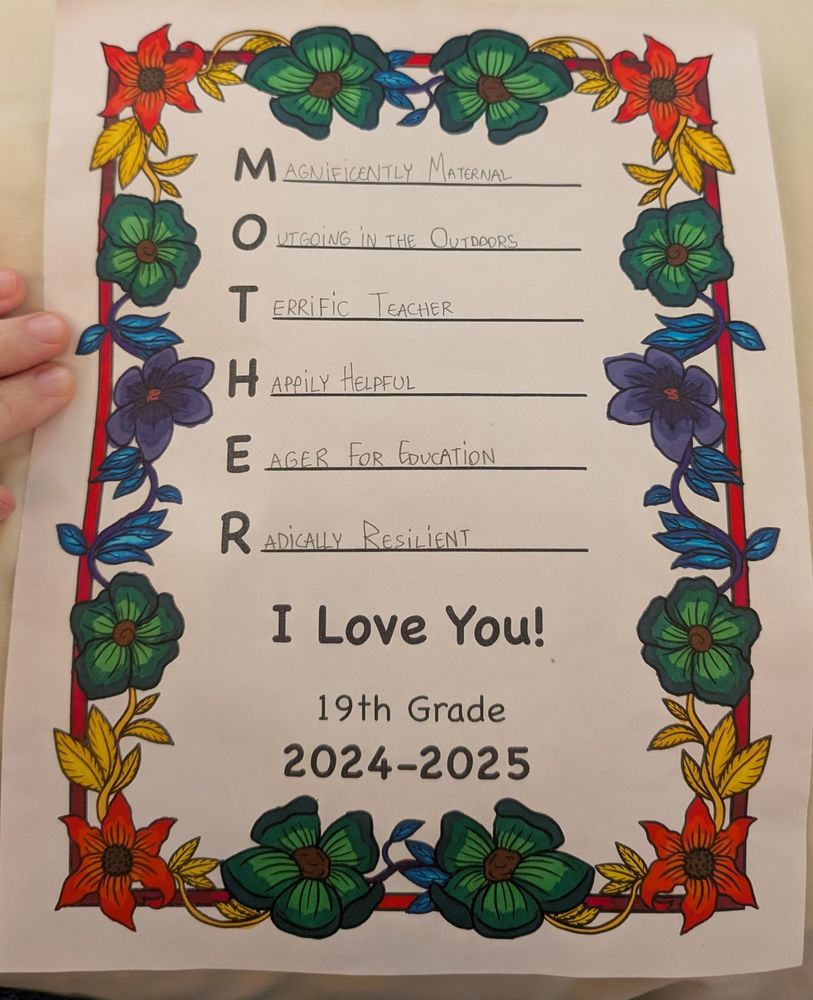 Magnificently Maternal
Outgoing in the Outdoors
Terrific Teacher
Happily Helpful
Eager For Education
Radically Resilient
I Love You!
19th Grade
2024-2025